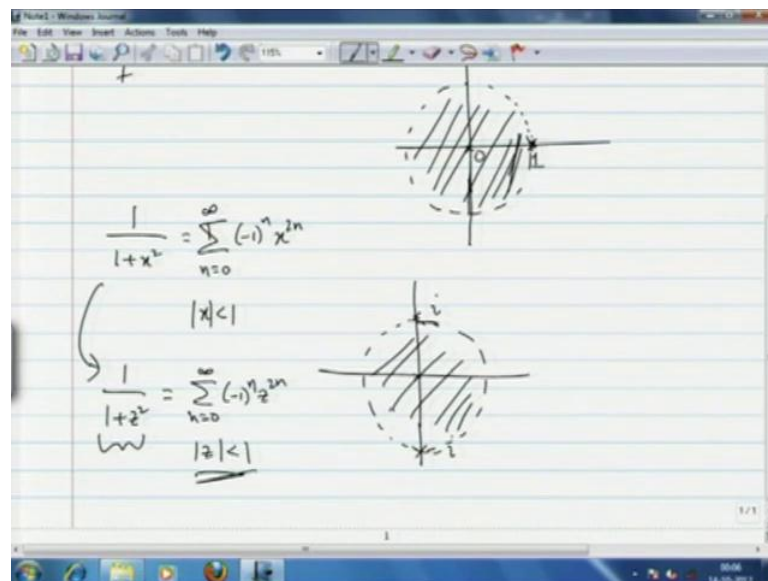 Note1 - Windows Journal
File Edit View Insert Actions Tools Help
115%
0 1
1/(1+x²) = ∑_{n=0}^{∞} (-1)ⁿ x²ⁿ
|x|<1
i
1/(1+z²) = ∑_{n=0}^{∞} (-1)ⁿ z²ⁿ
|z|<1
-i
1/1
1
00:06